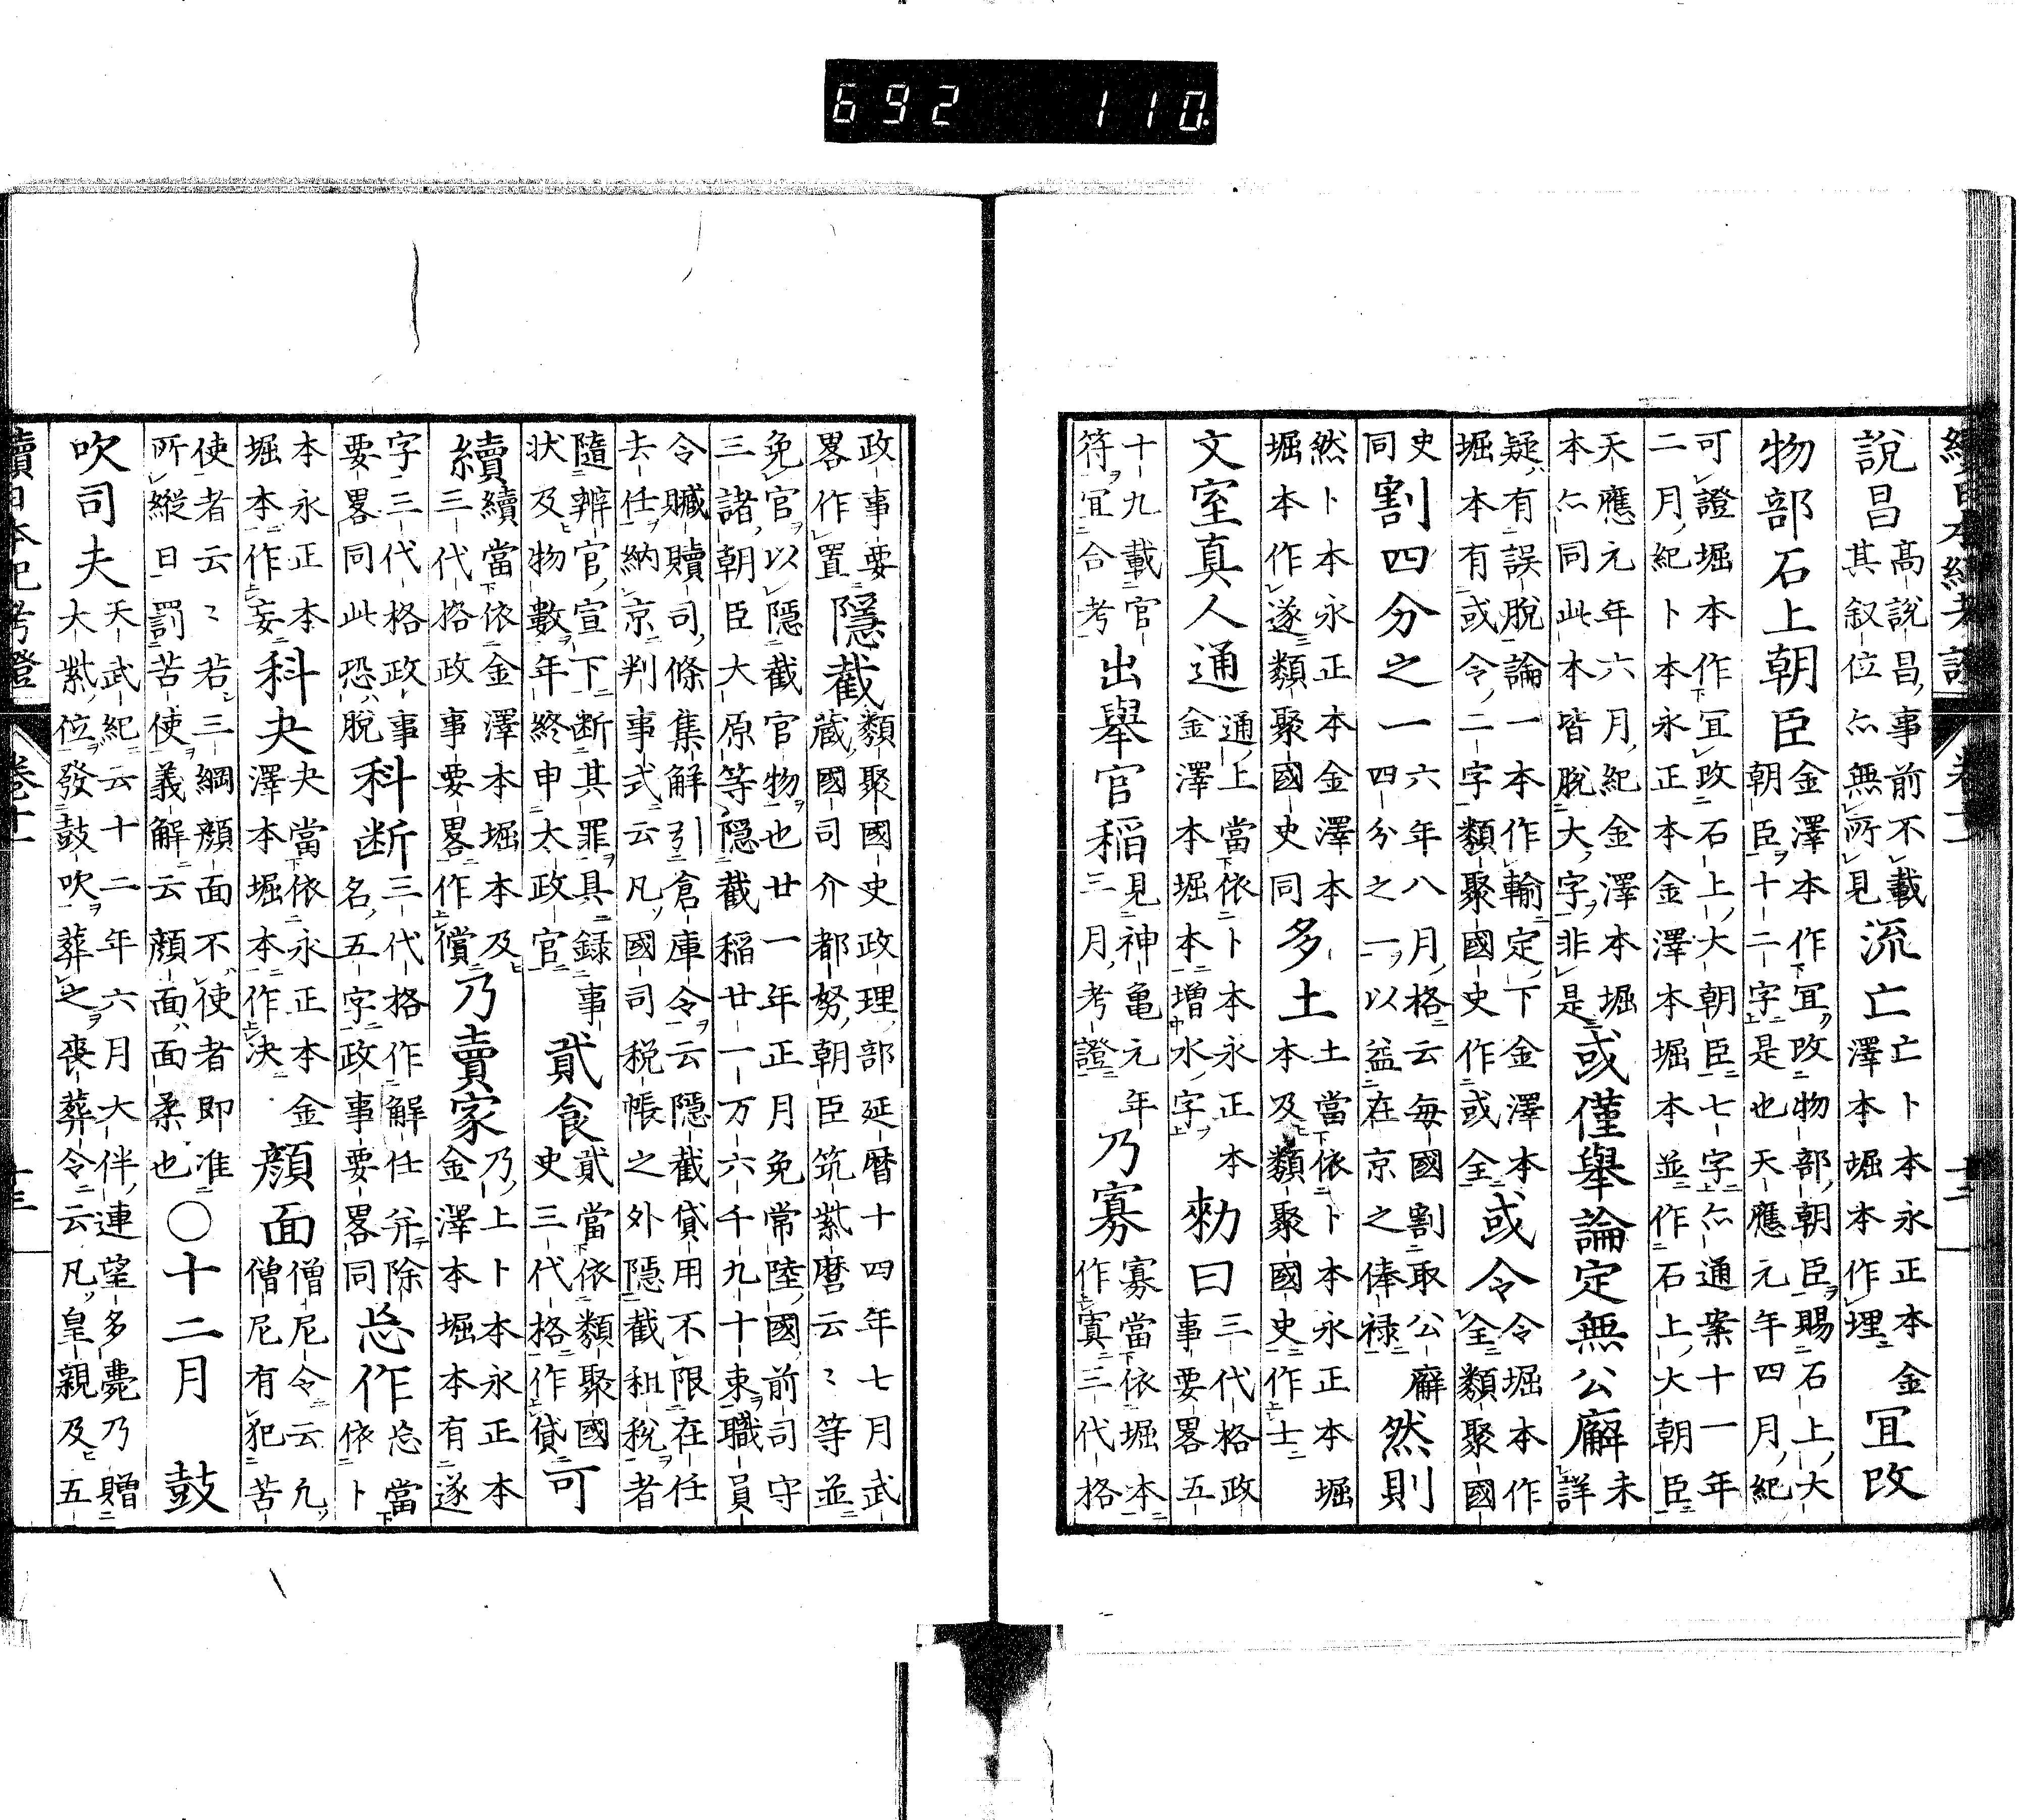 692 110
續日本紀考證 卷十二
説昌 高説昌事前不載 其叙位亦無所見 流亡 亡卜本永正本金 澤本堀本作埋 宜改
物部石上朝臣 金澤本作宜改物部朝臣賜石上大 朝臣十二字是也天應元年四月紀
可證堀本作宜改石上大朝臣七字亦通案十一年 二月紀卜本永正本金澤本堀本並作石上大朝臣
天應元年六月紀金澤本堀 本亦同此本皆脱大字非是 或僅舉論定無公廨 未 詳
疑有誤脱論一本作輸定下金澤本 堀本有或令二字類聚國史作或全 或令 令堀本作 全類聚國
史 同 割四分之一 六年八月格云毎國割取公廨 四分之一以益在京之俸禄 然則
然卜本永正本金澤本 堀本作遂類聚國史同 多土 土當依卜本永正本堀 本及類聚國史作士
文室真人通 通上當依卜本永正本 金澤本堀本増水字 勅曰 三代格政 事要畧五
十九載官 符宜合考 出舉官稲 見神亀元年 三月考證 乃寡 寡當依堀本 作寘三代格
政事要 畧作置 隱截 類聚國史政理部延暦十四年七月武 藏國司介都努朝臣筑紫麿云〻等並
免官以隱截官物也廿一年正月免常陸國前司守 三諸朝臣大原等隱截稲廿一万六千九十束職員
令贓贖司條集解引倉庫令云隱截貸用不限在任 去任納京判事式云凡國司税帳之外隱截租税者
隨辨官宣下断其罪具録事 状及物數年終申太政官 貳食 貳當依類聚國 史三代格作貸 可
續 續當依金澤本堀本及 三代格政事要畧作償 乃賣家 乃上卜本永正本 金澤本堀本有遂
字三代格政事要 要畧同此恐脱 科断 三代格作解任并除 名五字政事要畧同 忩作 忩當 依卜
本永正本 堀本作妄 科夬 夬當依永正本金 澤本堀本作決 顔面 僧尼令云凡 僧尼有犯苦
使者云〻若三綱顔面不使者即准 所縦日罰苦使義解云顔面面柔也 〇十二月 鼓
吹司夫 天武紀云十二年六月大伴連望多薨乃贈 大紫位發鼓吹葬之喪葬令云凡皇親及五
續日本紀考證 卷十二 十三